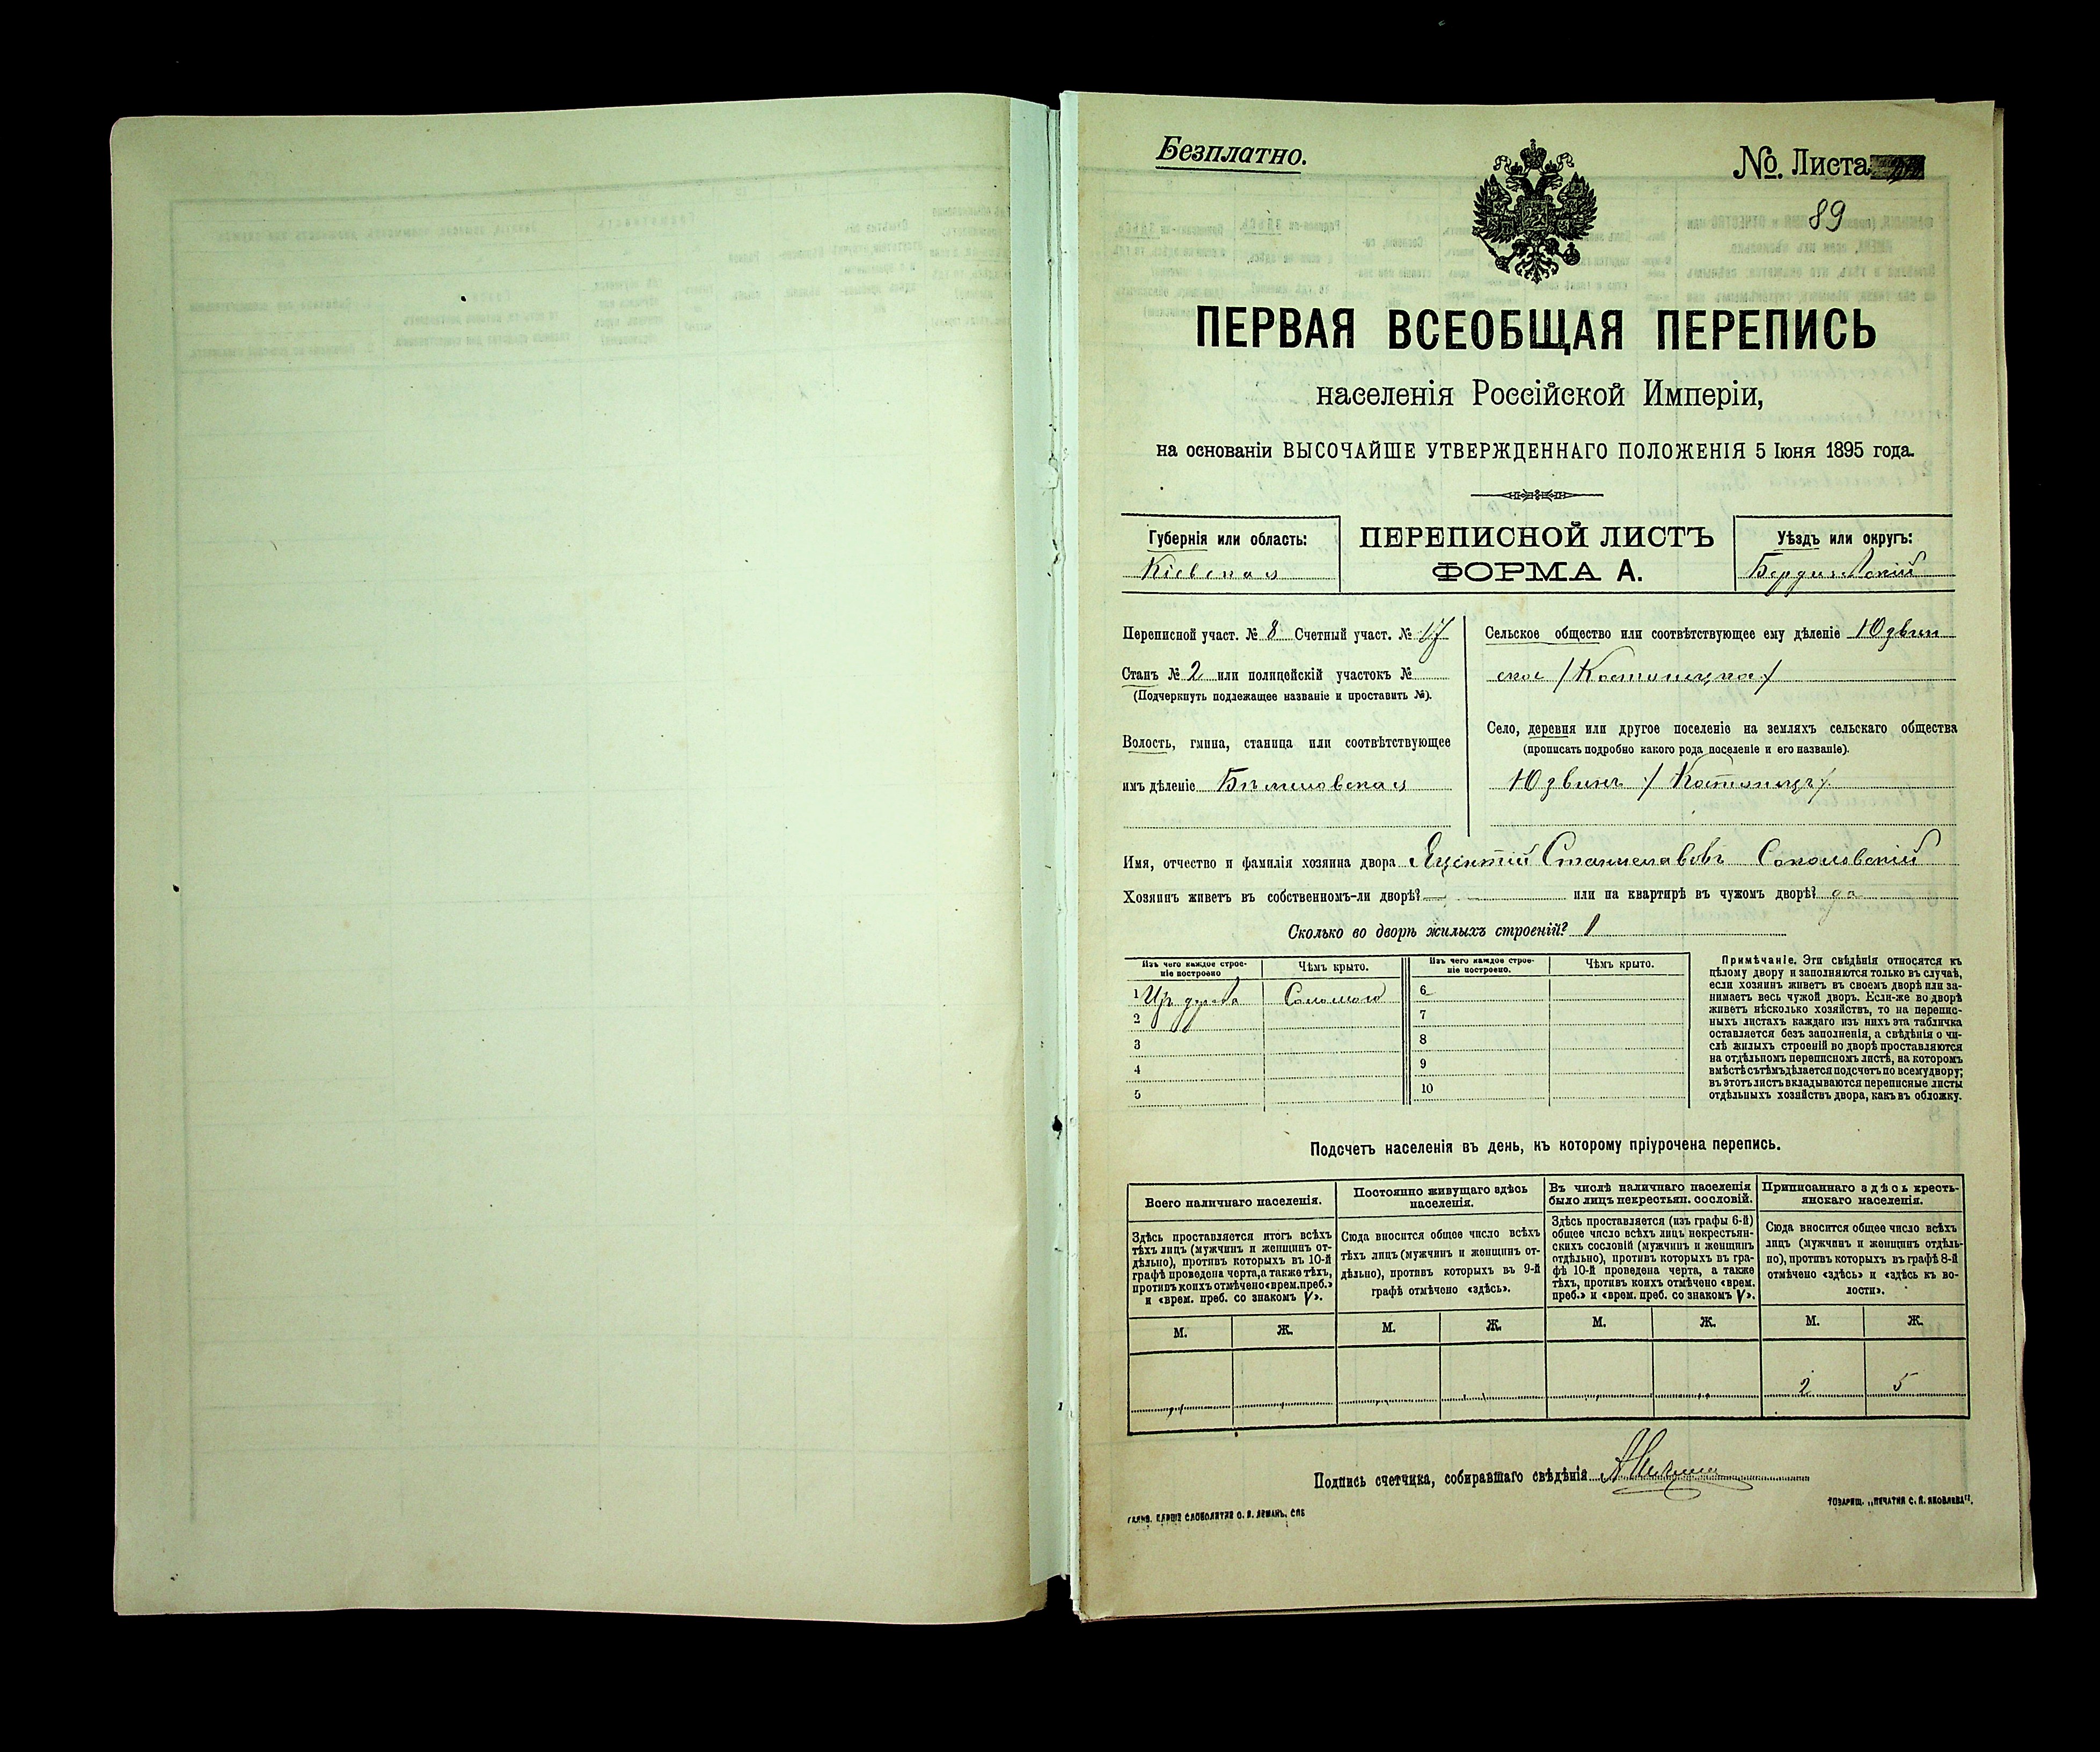 Безплатно.
№. Листа
89
ПЕРВАЯ ВСЕОБЩАЯ ПЕРЕПИСЬ
населенія Россійской Имперіи,
на основаніи ВЫСОЧАЙШЕ УТВЕРЖДЕННАГО ПОЛОЖЕНІЯ 5 Іюня 1895 года.
Губернія или область:
Кіевская
ПЕРЕПИСНОЙ ЛИСТЪ
ФОРМА А.
Уѣздъ или округъ:
Бердичевскій
Переписной участ. № 8 Счетный участ. № 17
Станъ № 2 или полицейскій участокъ №
(Подчеркнуть подлежащее названіе и проставить №).
Волость, гмина, станица или соотвѣтствующее
имъ дѣленіе Бѣлиловская
Сельское общество или соотвѣтствующее ему дѣленіе Юзвин
ское /Костинецкое/
Село, деревня или другое поселеніе на земляхъ сельскаго общества
(прописать подробно какого рода поселеніе и его названіе).
Юзвинъ /Костинецъ/
Имя, отчество и фамилія хозяина двора Яцентій Станиславовъ Соколовскій
Хозяинъ живетъ въ собственномъ-ли дворѣ? — или на квартирѣ въ чужомъ дворѣ? да
Сколько во дворѣ жилыхъ строеній? 1
Изъ чего каждое строе-
ніе построено
Чѣмъ крыто.
Изъ чего каждое строе-
ніе построено.
Чѣмъ крыто.
1 Изъ дерева Соломою
2
3
4
5
6
7
8
9
10
Примѣчаніе. Эти свѣдѣнія относятся къ
цѣлому двору и заполняются только въ случаѣ,
если хозяинъ живетъ въ своемъ дворѣ или за-
нимаетъ весь чужой дворъ. Если-же во дворѣ
живетъ нѣсколько хозяйствъ, то на перепис-
ныхъ листахъ каждаго изъ нихъ эта табличка
оставляется безъ заполненія, а свѣдѣнія о чи-
слѣ жилыхъ строеній во дворѣ проставляются
на отдѣльномъ переписномъ листѣ, на которомъ
вмѣстѣ съ тѣмъ дѣлается подсчетъ по всему двору;
въ этотъ листъ вкладываются переписные листы
отдѣльныхъ хозяйствъ двора, какъ въ обложку.
Подсчетъ населенія въ день, къ которому пріурочена перепись.
Всего наличнаго населенія.
Здѣсь проставляется итогъ всѣхъ
тѣхъ лицъ (мужчинъ и женщинъ от-
дѣльно), противъ которыхъ въ 10-й
графѣ проведена черта, а также тѣхъ,
противъ коихъ отмѣчено «врем. преб.»
и «врем. преб. со знакомъ V».
М. Ж.
Постоянно живущаго здѣсь
населенія.
Сюда вносится общее число всѣхъ
тѣхъ лицъ (мужчинъ и женщинъ от-
дѣльно), противъ которыхъ въ 9-й
графѣ отмѣчено «здѣсь».
М. Ж.
Въ числѣ наличнаго населенія
было лицъ некрестьян. сословій.
Здѣсь проставляется (изъ графы 6-й)
общее число всѣхъ лицъ некрестьян-
скихъ сословій (мужчинъ и женщинъ
отдѣльно), противъ которыхъ въ гра-
фѣ 10-й проведена черта, а также
тѣхъ, противъ коихъ отмѣчено «врем.
преб.» и «врем. преб. со знакомъ V».
М. Ж.
Приписаннаго здѣсь кресть-
янскаго населенія.
Сюда вносится общее число всѣхъ
лицъ (мужчинъ и женщинъ отдѣль-
но), противъ которыхъ въ графѣ 8-й
отмѣчено «здѣсь» и «здѣсь къ во-
лости».
М. Ж.
2 5
Подпись счетчика, собиравшаго свѣдѣнія
ТОВАРИЩ. „ПЕЧАТНЯ С. П. ЯКОВЛЕВА".